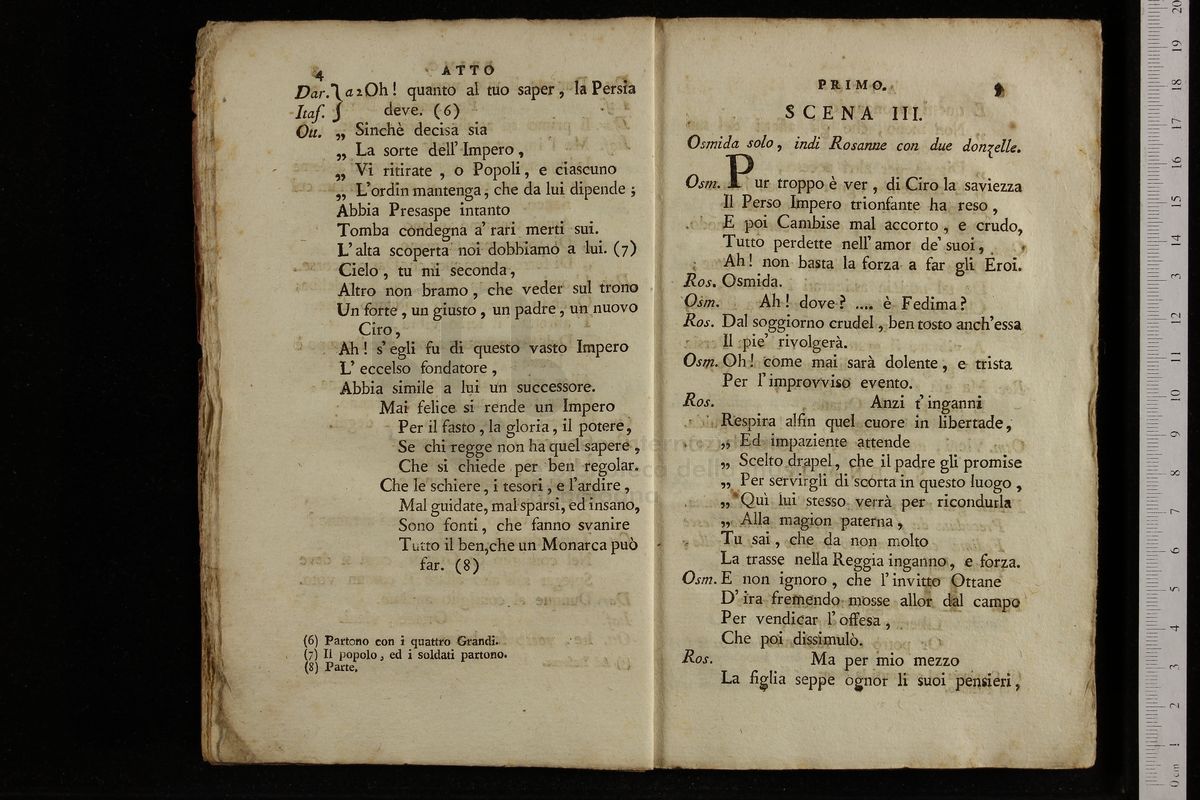 4
ATTO
Dar. } a 2 Oh! quanto al tuo saper, la Persia
Itaf. } deve. (6)
Ott. „ Sinchè decisa sia
„ La sorte dell' Impero,
„ Vi ritirate, o Popoli, e ciascuno
„ L'ordin mantenga, che da lui dipende;
Abbia Presaspe intanto
Tomba condegna a' rari merti sui.
L'alta scoperta noi dobbiamo a lui. (7)
Cielo, tu mi seconda,
Altro non bramo, che veder sul trono
Un forte, un giusto, un padre, un nuovo
Ciro,
Ah! s'egli fu di questo vasto Impero
L' eccelso fondatore,
Abbia simile a lui un successore.
Mai felice si rende un Impero
Per il fasto, la gloria, il potere,
Se chi regge non ha quel sapere,
Che si chiede per ben regolar.
Che le schiere, i tesori, e l'ardire,
Mal guidate, mal sparsi, ed insano,
Sono fonti, che fanno svanire
Tutto il ben, che un Monarca può
far. (8)
(6) Partono con i quattro Grandi.
(7) Il popolo, ed i soldati partono.
(8) Parte.
PRIMO.
SCENA III.
Osmida solo, indi Rosanne con due donzelle.
Osm. Pur troppo è ver, di Ciro la saviezza
Il Perso Impero trionfante ha reso,
E poi Cambise mal accorto, e crudo,
Tutto perdette nell' amor de' suoi,
Ah! non basta la forza a far gli Eroi.
Ros. Osmida.
Osm. Ah! dove? .... è Fedima?
Ros. Dal soggiorno crudel, ben tosto anch'essa
Il pie' rivolgerà.
Osm. Oh! come mai sarà dolente, e trista
Per l'improvviso evento.
Ros. Anzi t'inganni
Respira alfin quel cuore in libertade,
„ Ed impaziente attende
„ Scelto drapel, che il padre gli promise
„ Per servirgli di scorta in questo luogo,
„ Quì lui stesso verrà per ricondurla
„ Alla magion paterna,
Tu sai, che da non molto
La trasse nella Reggia inganno, e forza.
Osm. E non ignoro, che l'invitto Ottane
D'ira fremendo mosse allor dal campo
Per vendicar l'offesa,
Che poi dissimulò.
Ros. Ma per mio mezzo
La figlia seppe ognor li suoi pensieri,